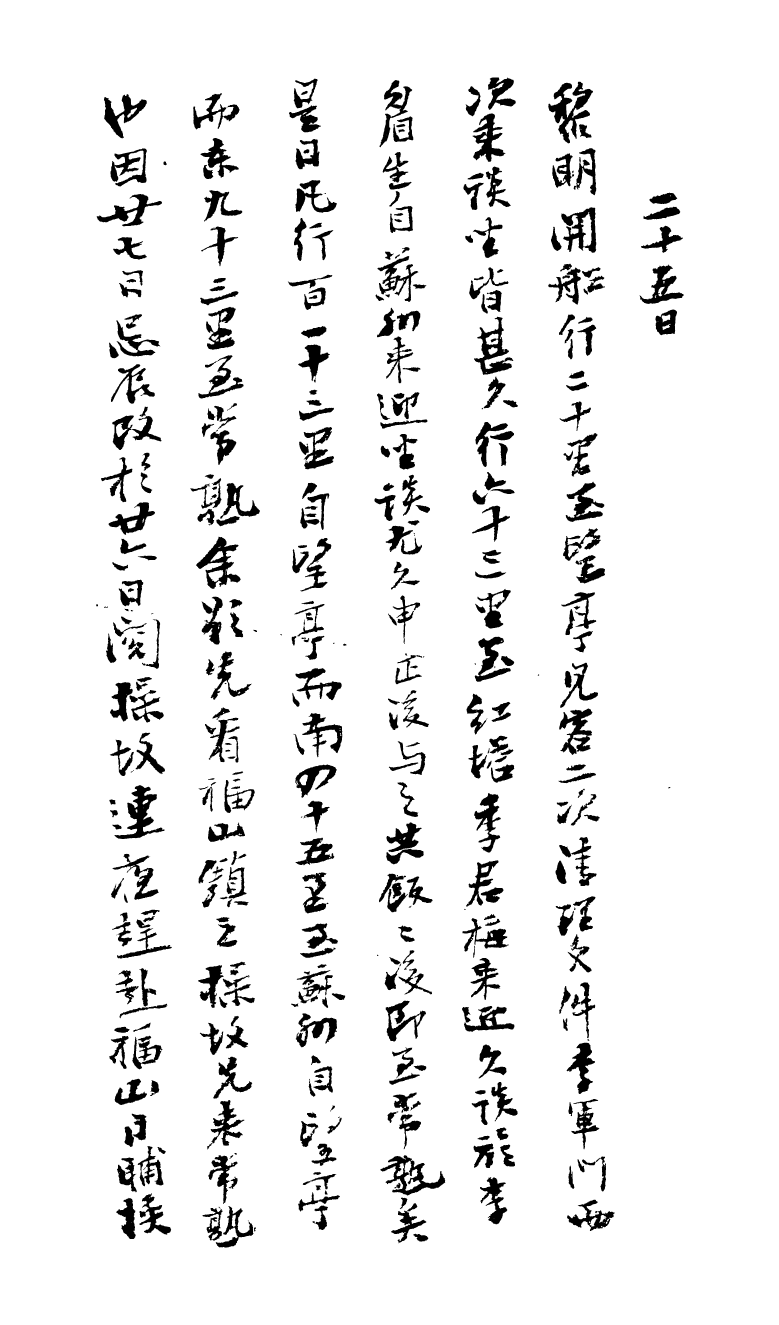 二十五日
黎明開船行二十里至望亭見客二次清理文件李軍門兩
次來談坐皆甚久行六十三里至紅塘季君梅來迎久談旋李
眉生自蘇州來迎坐談尤久申正後与之共飯〻後即至常熟矣
是日凡行百一十三里自望亭而南四十五里至蘇州自望亭
而東九十三里至常熟余欲先看福山鎮之操故先來常熟
也因廿七日忌辰改於廿六日閱操故連夜趕赴福山日晡換